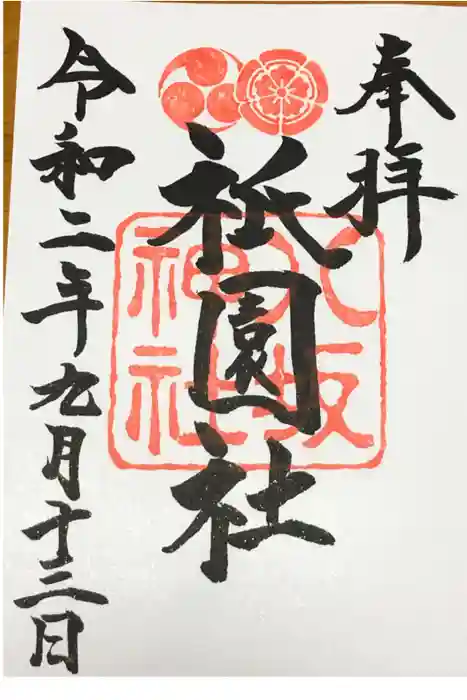 奉拝
八坂
神社
祇園社
令和二年九月十三日